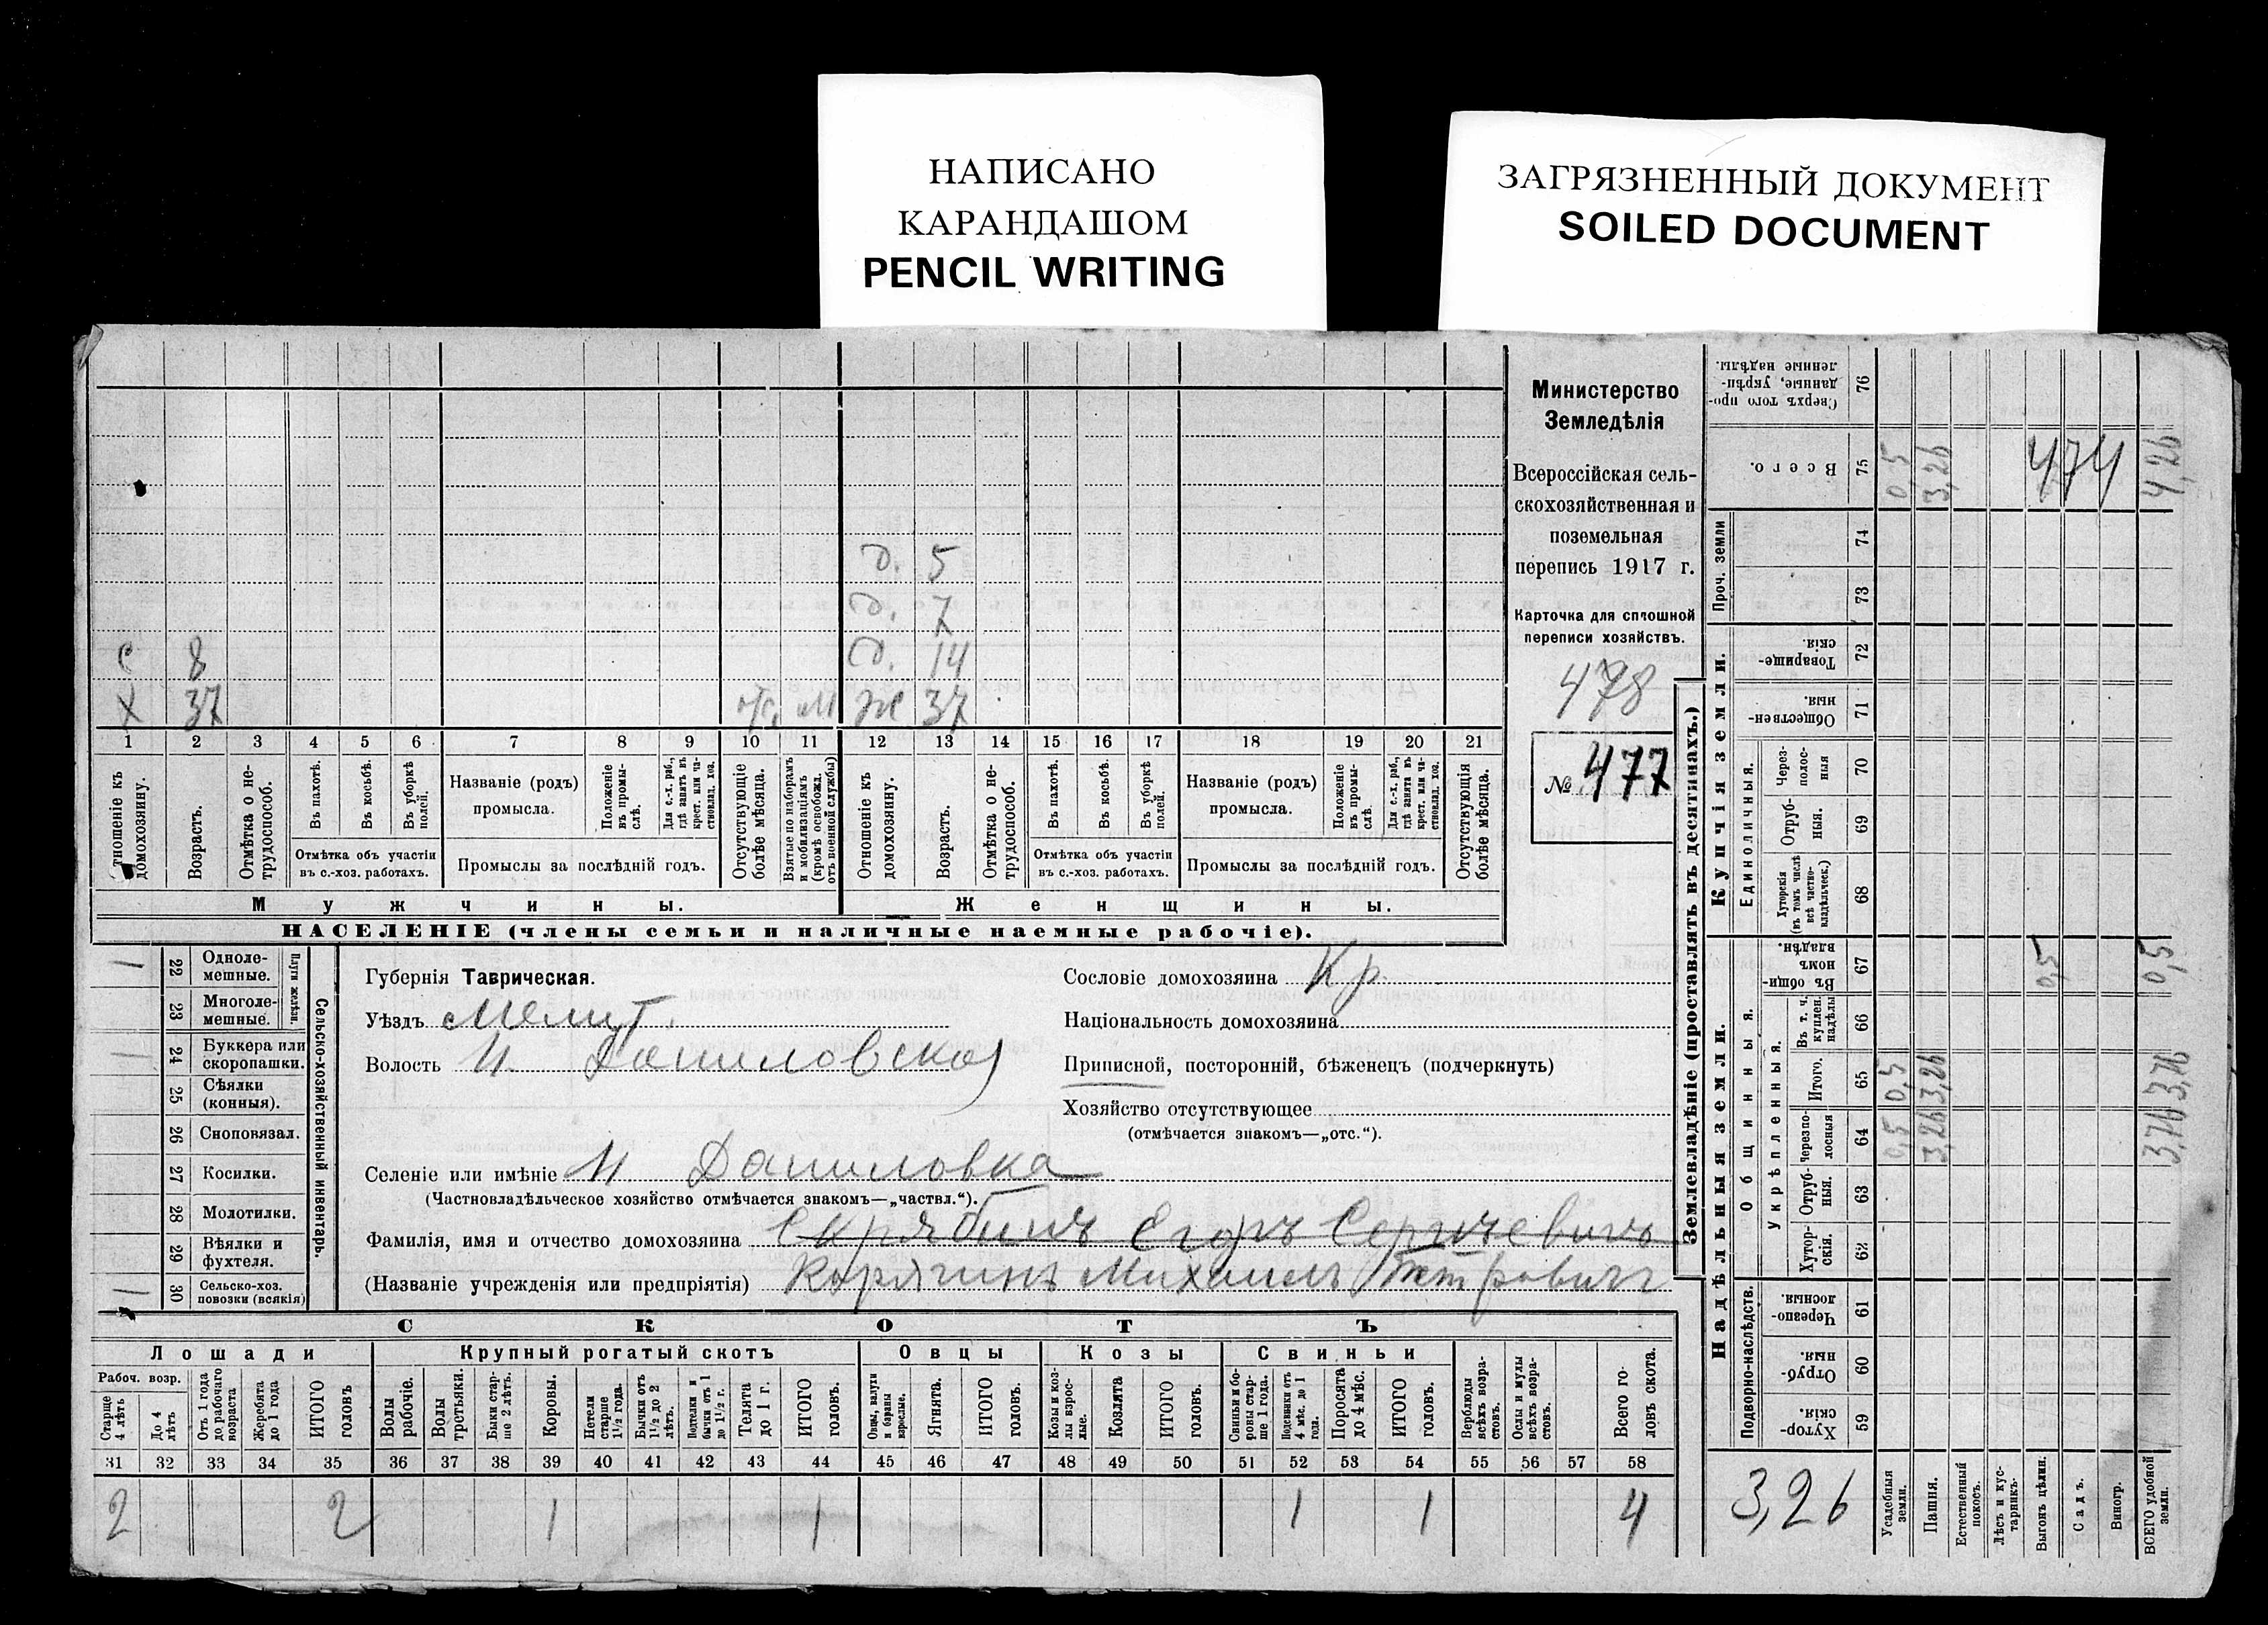 НАПИСАНО
КАРАНДАШОМ
PENCIL WRITING
ЗАГРЯЗНЕННЫЙ ДОКУМЕНТ
SOILED DOCUMENT
д. 5
д. 7
с 8 д. 14
х 37 отс. м ж 37
1 2 3 4 5 6 7 8 9 10 11 12 13 14 15 16 17 18 19 20 21
тношеніе къ домохозяину.
Возрастъ.
Отмѣтка о не-
трудоспособ.
Въ пахотѣ.
Въ косьбѣ.
Въ уборкѣ
полей.
Отмѣтка объ участіи
въ с.-хоз. работахъ.
Названіе (родъ)
промысла.
Положеніе
въ промы-
слѣ.
Для с.-х. раб.,
гдѣ занятъ въ
крест. или ча-
стновлад. хоз.
Промыслы за послѣдній годъ.
Отсутствующіе
болѣе мѣсяца.
Взятые по наборамъ
и мобилизаціямъ
(кромѣ освобожд.
отъ военной службы)
Отношеніе къ
домохозяину.
Возрастъ.
Отмѣтка о не-
трудоспособ.
Въ пахотѣ.
Въ косьбѣ.
Въ уборкѣ
полей.
Отмѣтка объ участіи
въ с.-хоз. работахъ.
Названіе (родъ)
промысла.
Положеніе
въ промы-
слѣ.
Для с.-х. раб.,
гдѣ занятъ въ
крест. или ча-
стновлад. хоз.
Промыслы за послѣдній годъ.
Отсутствующія
болѣе мѣсяца.
Мужчины.
Женщины.
НАСЕЛЕНІЕ (члены семьи и наличные наемные рабочіе).
Министерство
Земледѣлія
Всероссійская сель-
скохозяйственная и
поземельная
перепись 1917 г.
Карточка для сплошной
переписи хозяйствъ.
478
№ 477
1 22 Одноле-
мешные.
23 Многоле-
мешные.
Плуги желѣзн.
1 24 Буккера или
скоропашки.
25 Сѣялки
(конныя).
26 Сноповязал.
27 Косилки.
28 Молотилки.
29 Вѣялки и
фухтеля.
1 30 Сельско-хоз.
повозки (всякія)
Сельско-хозяйственный инвентарь.
Губернія Таврическая.
Уѣздъ Мелит.
Волость Н. Даниловская
Селеніе или имѣніе Н Даниловка
(Частновладѣльческое хозяйство отмѣчается знакомъ—„частвл.“).
Фамилія, имя и отчество домохозяина Скрябинъ Егоръ Сергѣевичъ
(Названіе учрежденія или предпріятія) Карягинъ Михаилъ Петровичъ
Сословіе домохозяина Кр.
Національность домохозяина
Приписной, посторонній, бѣженецъ (подчеркнуть)
Хозяйство отсутствующее
(отмѣчается знакомъ—„отс.“).
СКОТЪ
Лошади
Крупный рогатый скотъ
Овцы
Козы
Свиньи
Рабоч. возр.
Старше
4 лѣтъ
До 4
лѣтъ
Отъ 1 года
до рабочаго
возраста
Жеребята
до 1 года
ИТОГО
головъ
Волы
рабочіе.
Волы
третьяки.
Быки стар-
ше 2 лѣтъ.
Коровы.
Нетели
старше
1½ года.
Бычки отъ
1½ до 2
лѣтъ.
Подтелки и
бычки отъ 1
до 1½ г.
Телята
до 1 г.
ИТОГО
головъ.
Овцы, валухи
и бараны
взрослые.
Ягнята.
ИТОГО
головъ.
Козы и коз-
лы взрос-
лые.
Козлята
ИТОГО
головъ.
Свиньи и бо-
ровы стар-
ше 1 года.
Подсвинки отъ
4 мѣс. до 1
года.
Поросята
до 4 мѣс.
ИТОГО
головъ.
Верблюды
всѣхъ возра-
стовъ.
Ослы и мулы
всѣхъ возра-
стовъ.
Всего го-
ловъ скота.
31 32 33 34 35 36 37 38 39 40 41 42 43 44 45 46 47 48 49 50 51 52 53 54 55 56 57 58
2 2 1 1 1 1 4
Землевладѣніе (проставлять въ десятинахъ.)
Надѣльныя земли.
Купчія земли.
Проч. земли
Подворно-наслѣдств.
Общинныя.
Укрѣпленныя.
Единоличныя.
Сверхъ того про-
данные, укрѣп-
ленные надѣлы.
76
Всего.
75 0,5 3,26 474 4,26
74
73
Товарище-
скія
72
Обществен-
ныя
71
Через-
полос-
ныя
70
Отруб-
ныя.
69
Хуторскія
(въ томъ числѣ
всѣ частно-
владѣльческ.)
68
Въ общин-
номъ
владѣн.
67 0,5 0,5
Въ т. ч.
куплен.
надѣлы
66
Итого.
65 0,5 3,26 3,76
Черезпо-
лосныя
64 0,5 3,26 3,76
Отруб-
ныя.
63
Хутор-
скія.
62
Черезпо-
лосныя.
61
Отруб-
ныя.
60
Хутор-
скія.
59
3,26
Усадебныя
земли.
Пашня.
Естественный
покосъ.
Лѣсъ и кус-
тарникъ.
Выгонъ цѣлин.
Садъ.
Виногр.
ВСЕГО удобной
земли.